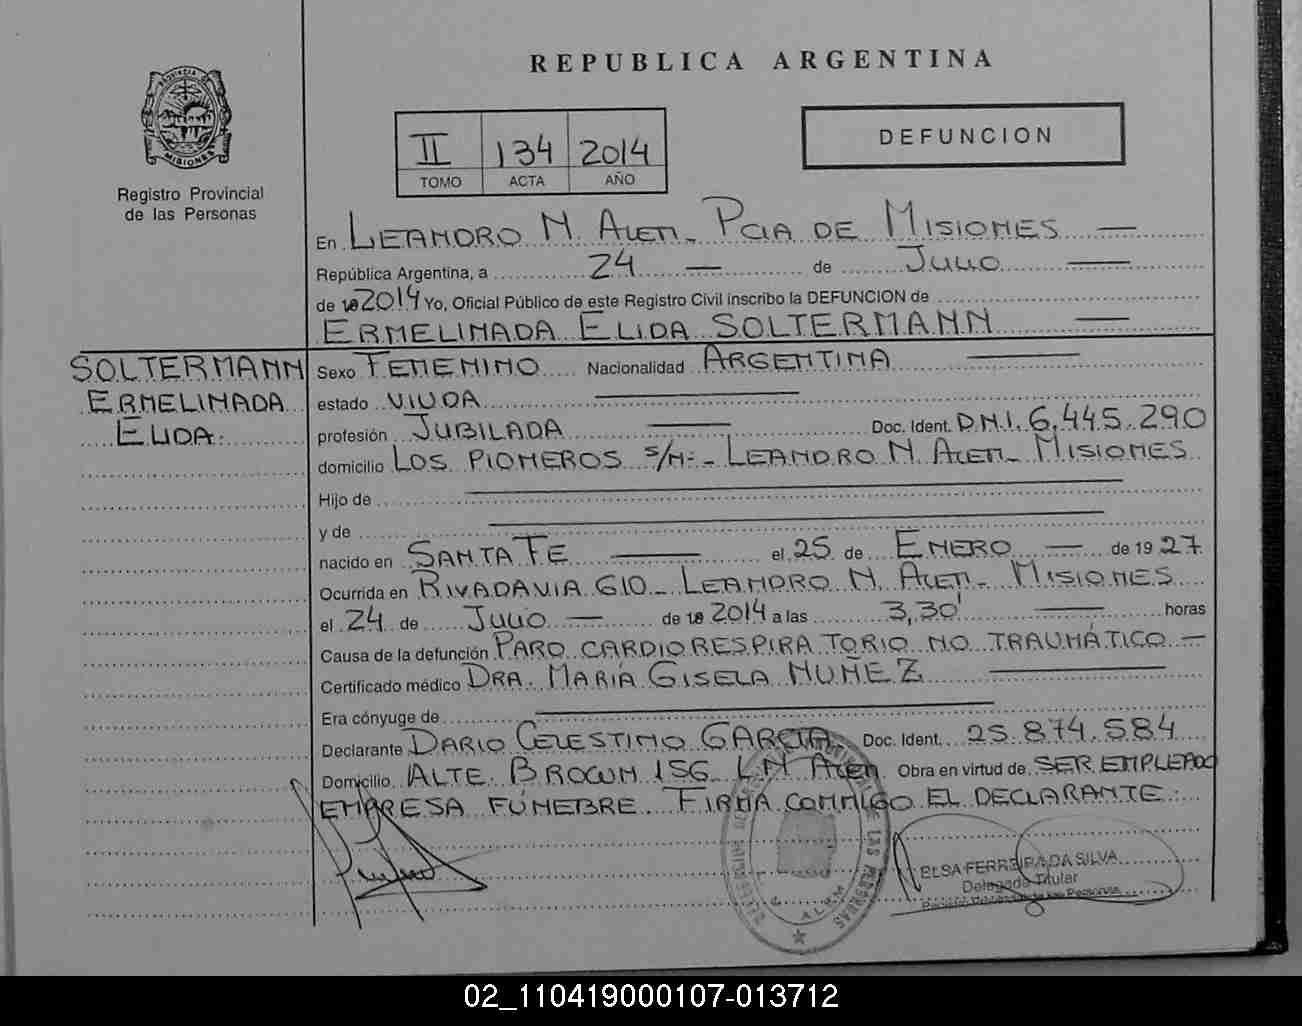 REPUBLICA ARGENTINA
PROVINCIA DE
MISIONES
Registro Provincial
de las Personas
DEFUNCION
II 134 2014
TOMO ACTA AÑO
En LEANDRO N. ALEM - PCIA DE MISIONES
República Argentina, a 24 de JULIO
de 2014 Yo, Oficial Público de este Registro Civil inscribo la DEFUNCION de
ERMELINADA ELIDA SOLTERMANN
SOLTERMANN
ERMELINADA
ELIDA.
Sexo FEMENINO Nacionalidad ARGENTINA
estado VIUDA
profesión JUBILADA Doc. Ident. D.N.I. 6.445.290
domicilio LOS PIONEROS S/N:- LEANDRO N ALEM - MISIONES
Hijo de
y de
nacido en SANTA FE el 25 de ENERO de 1927
Ocurrida en RIVADAVIA 610 - LEANDRO N. ALEM - MISIONES
el 24 de JULIO de 2014 a las 3,30' horas
Causa de la defunción PARO CARDIORESPIRATORIO NO TRAUMÁTICO
Certificado médico DRA. MARÍA GISELA NUÑEZ
Era cónyuge de
Declarante DARIO CELESTINO GARCIA Doc. Ident. 25.874.584
Domicilio ALTE. BROWN 156 L N ALEM Obra en virtud de SER EMPLEADO
EMPRESA FÚNEBRE. FIRMA CONMIGO EL DECLARANTE.
DE LAS PERSONAS
ALEM
ELSA FERREIRA DA SILVA
Delegada Titular
02_110419000107-013712